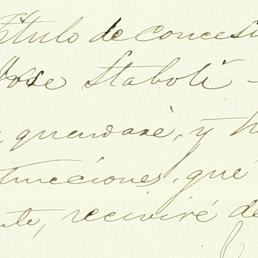 título de concesi
Jose Staboli -
, guardaré, y h
trucciones, que
nte, reciviré de